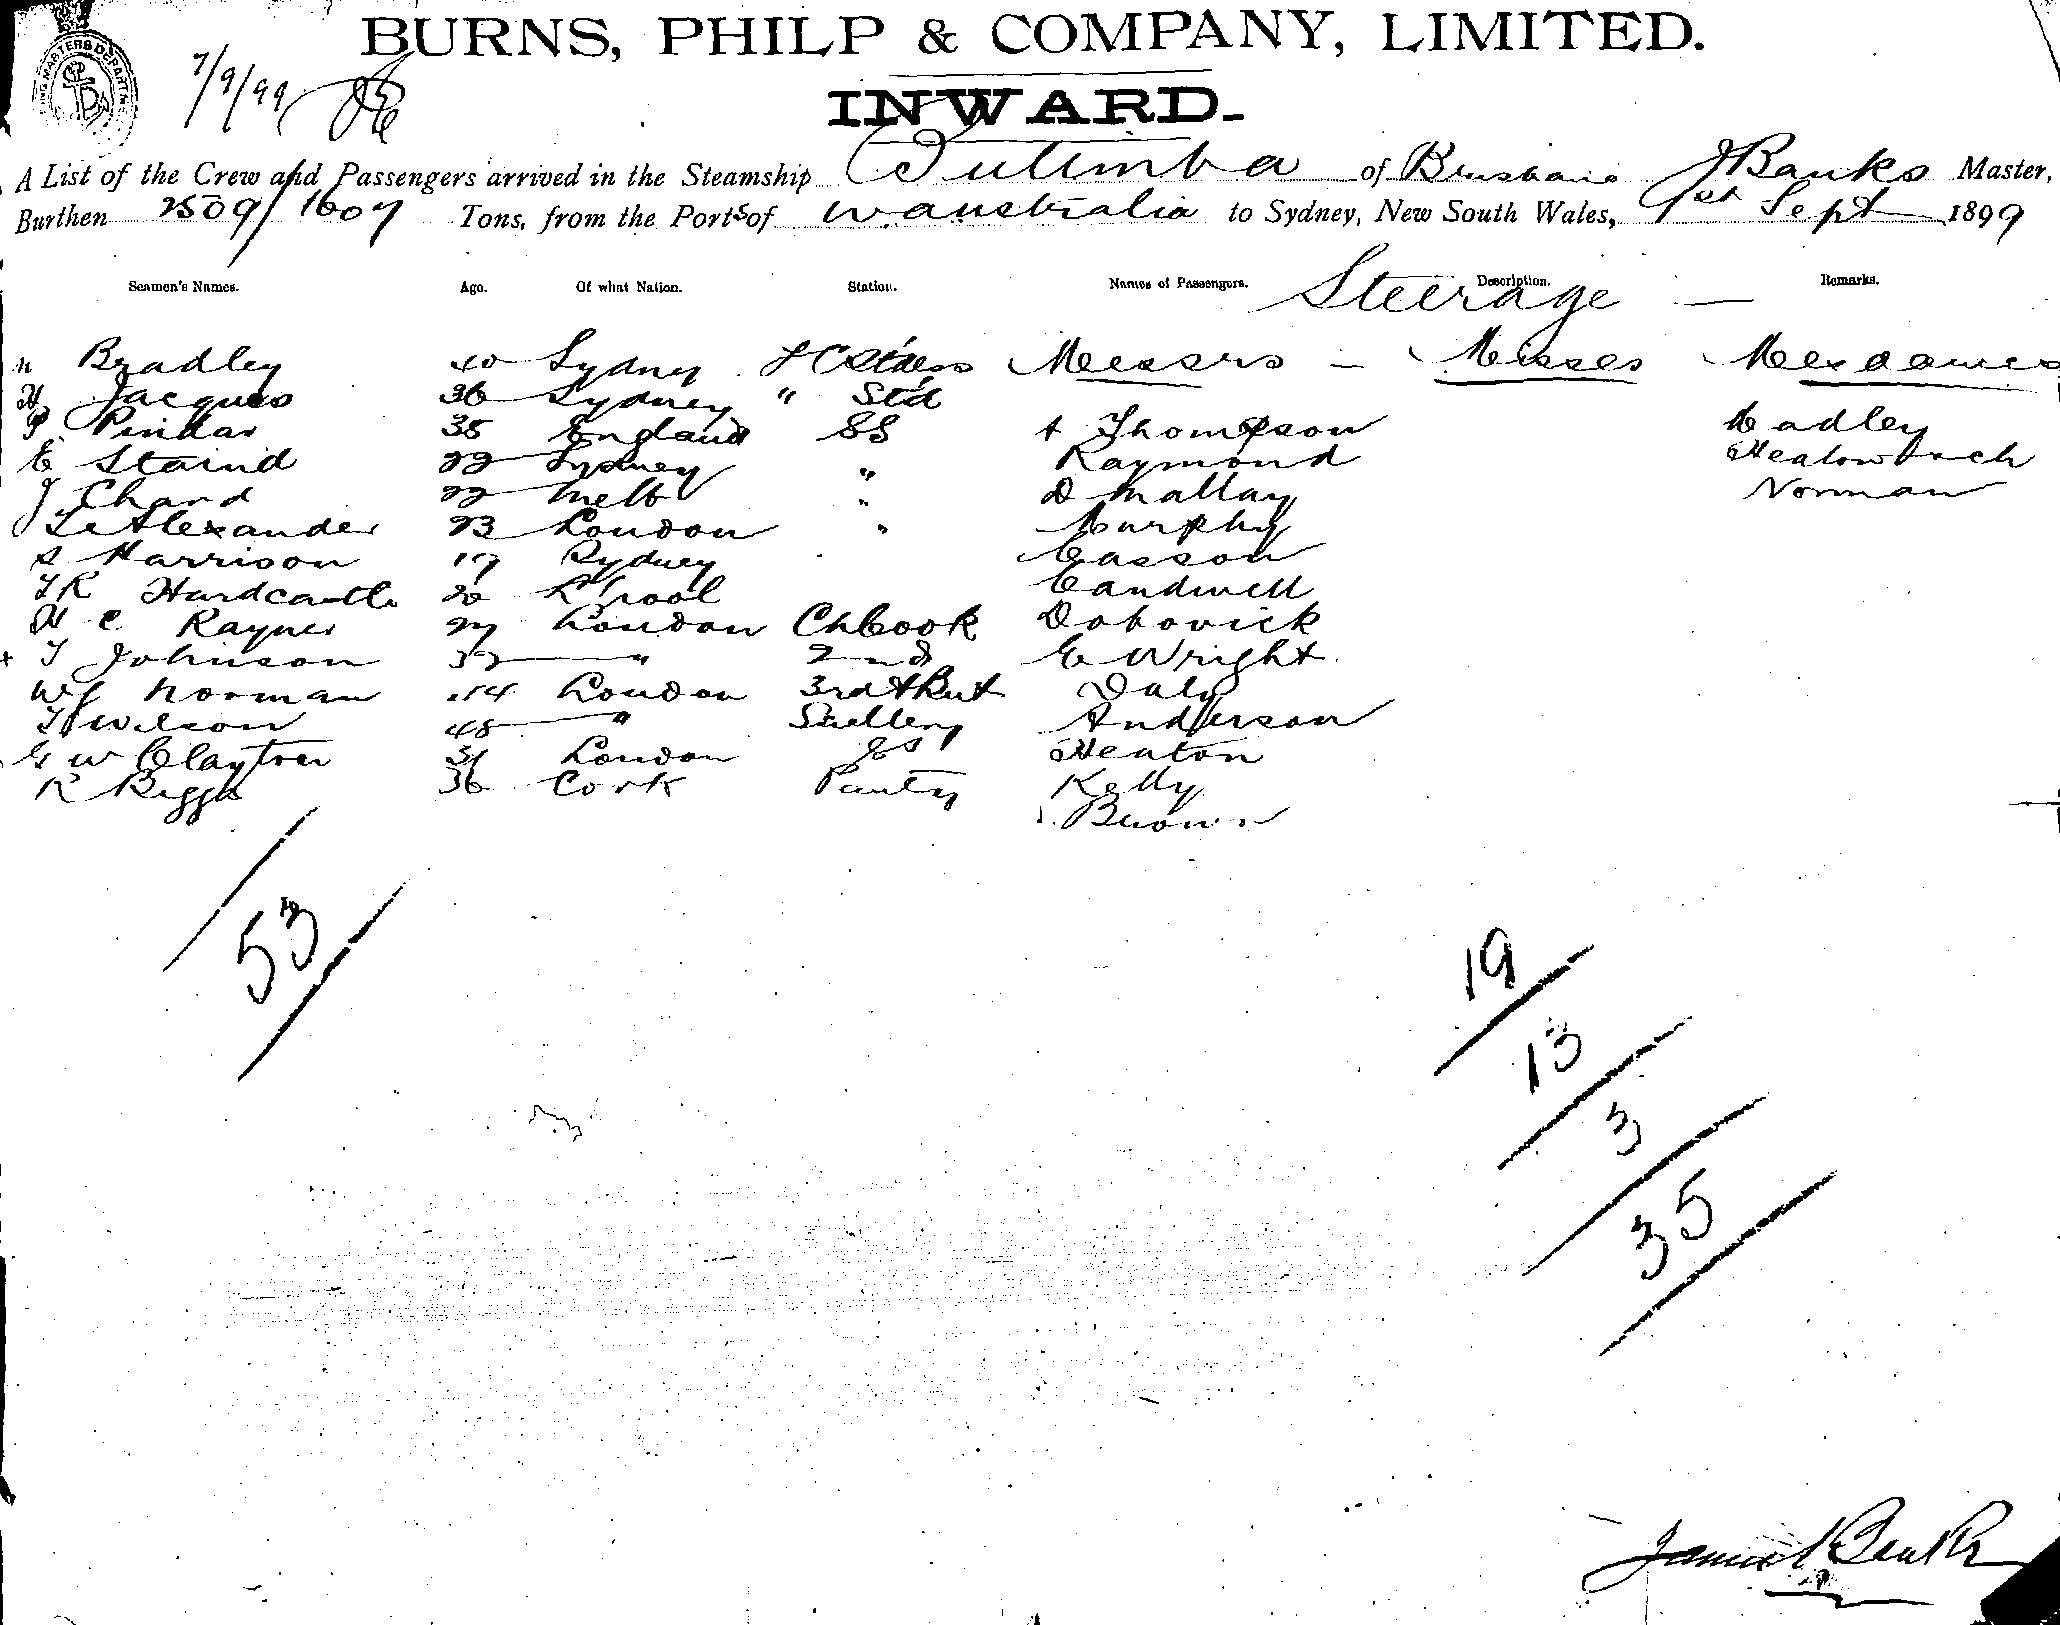 BURNS, PHILP & COMPANY, LIMITED.
7/9/99
INWARD.
A List of the Crew and Passengers arrived in the Steamship Tutinba of Brisbane J Banks Master,
Burthen 2509/1607 Tons, from the Ports of W Australia to Sydney, New South Wales, 1st Sept 1899
Seamen's Names. Age. Of what Nation. Station. Names of Passengers. Description. Remarks.
Steerage —
Bradley 40 Sydney Messrs — Misses Mesdames
Jacques 36 Sydney " Std
P Pindar 35 England SS A Thompson Cadley
E Staind 22 Sydney " Raymond
J Chand 22 Melb " D Mallay Norman
Le Alexander 23 London " Murphy
S Harrison 19 Sydney Casson
TR Hardcastle 20 L'pool Candwell
H C Rayner 27 London Ch Cook Dobovick
x T Johnson 32 " 2nd E Wright
WJ Norman 44 London 3rd & But Daly
T Wilson 48 " Scullery Anderson
G W Clayton 31 London GS Heaton
R Biggs 36 Cork Pantry Kelly
Brown
53
19
13
3
35
James Banks